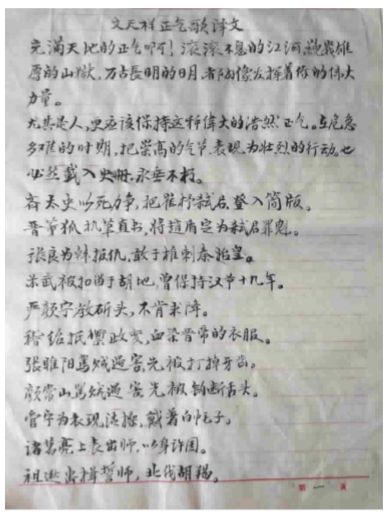 文天祥正气歌译文
充满天地的正气啊！滚滚不息的江河，巍峨雄
厚的山狱，万古长明的日月，都像发挥着你的伟大
力量。
尤其是人，更应该保持这种伟大的浩然正气。在危急
多难的时期，把崇高的气节表现为壮烈的行动，也
必然载入史册，永垂不朽。
齐太史以死力争，把崔杼弑君登入简版。
晋董狐执笔直书，将赵盾定为弑君罪魁。
张良为韩报仇，敢于椎刺秦始皇。
苏武被扣留于胡地，曾保持汉节十九年。
严颜宁教砍头，不肯求降。
嵇绍抵御政变，血染晋帝的衣服。
张睢阳骂贼遇害先被打掉牙齿。
颜常山骂贼遇害先被割断舌头。
管宁为表现清操，戴着白帽子。
诸葛亮上表出师，以身许国。
祖逖出楫誓师，北伐胡羯。
第一页